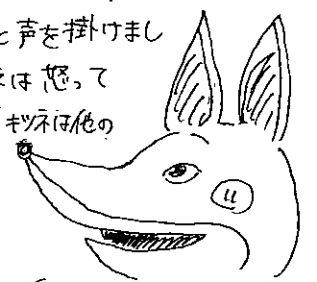 と声を掛けまし
は怒って
キツネは他の